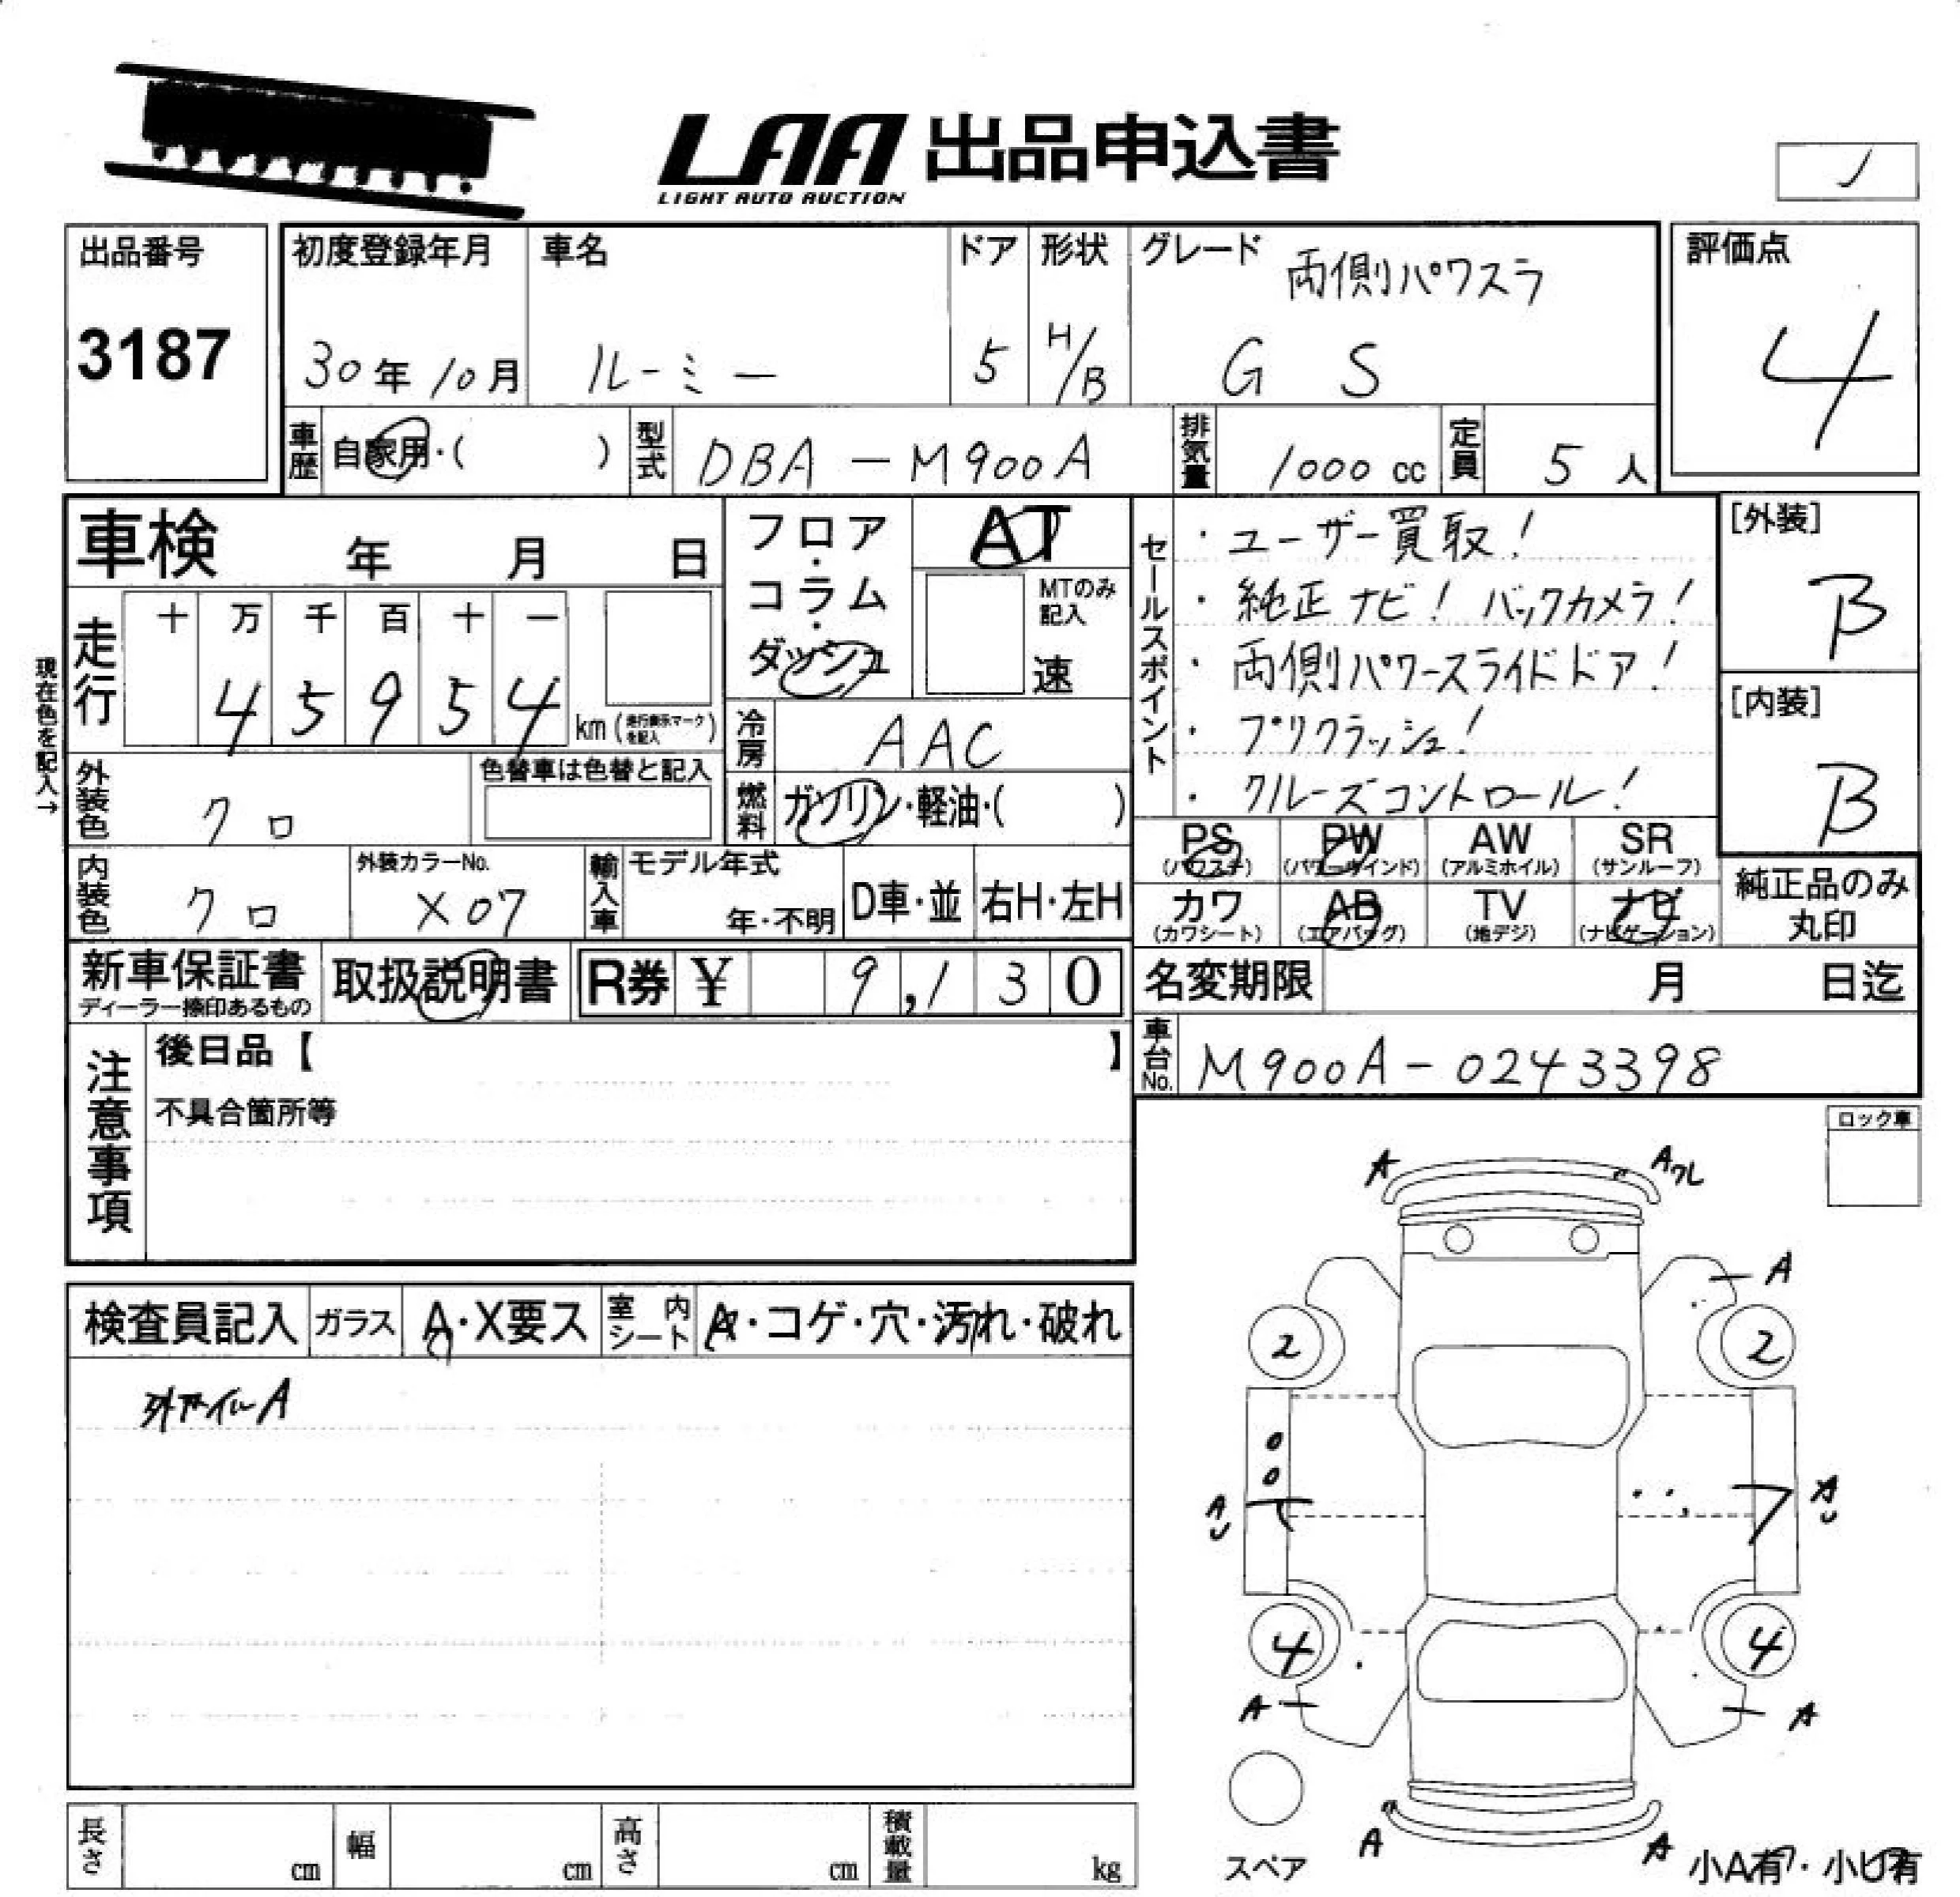 LAA 出品申込書
LIGHT AUTO AUCTION
出品番号
3187
初度登録年月
30年10月
車名
ルーミー
ドア
5
形状
H/B
グレード
両側パワスラ
G S
評価点
4
車歴 自家用・( )
型式 DBA-M900A
排気量 1000 cc
定員 5 人
車検 年 月 日
走行
十 万 千 百 十 一
4 5 9 5 4
km (走行表示マークを記入)
現在色を記入→
外装色 クロ
色替車は色替と記入
内装色 クロ
外装カラーNo.
X07
フロア・コラム・ダッシュ
AT
MTのみ記入
速
冷房 AAC
燃料 ガソリン・軽油・( )
輸入車
モデル年式
年・不明
D車・並
右H・左H
セールスポイント
・ユーザー買取!
・純正ナビ! バックカメラ!
・両側パワースライドドア!
・プリクラッシュ!
・クルーズコントロール!
[外装]
B
[内装]
B
PS (パワステ)
PW (パワーウインド)
AW (アルミホイル)
SR (サンルーフ)
カワ (カワシート)
AB (エアバッグ)
TV (地デジ)
ナビ (ナビゲーション)
純正品のみ丸印
新車保証書
ディーラー捺印あるもの
取扱説明書
R券 ¥ 9,130
名変期限 月 日迄
車台No. M900A-0243398
注意事項
後日品【 】
不具合箇所等
ロック車
検査員記入
ガラス A・X要ス
室内シート A・コゲ・穴・汚れ・破れ
A
A
Aワレ
A
2
2
A
A
4
4
A
A
A
A
スペア
小A有・小U有
長さ cm
幅 cm
高さ cm
積載量 kg